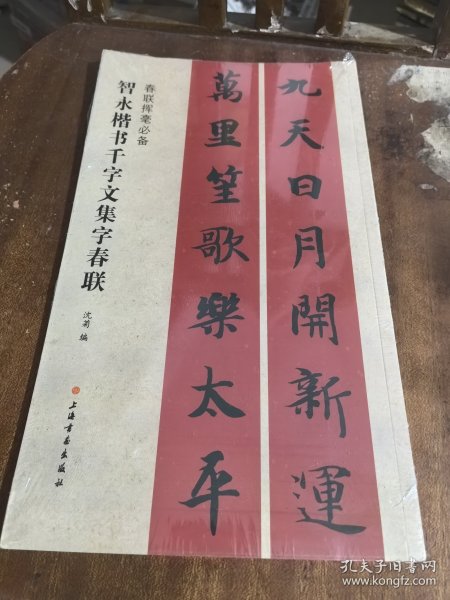 九天日月開新運
萬里笙歌樂太平
春联挥毫必备
智永楷书千字文集字春联
沈菊 编
上海书画出版社
孔夫子旧书网
www.kongfz.com